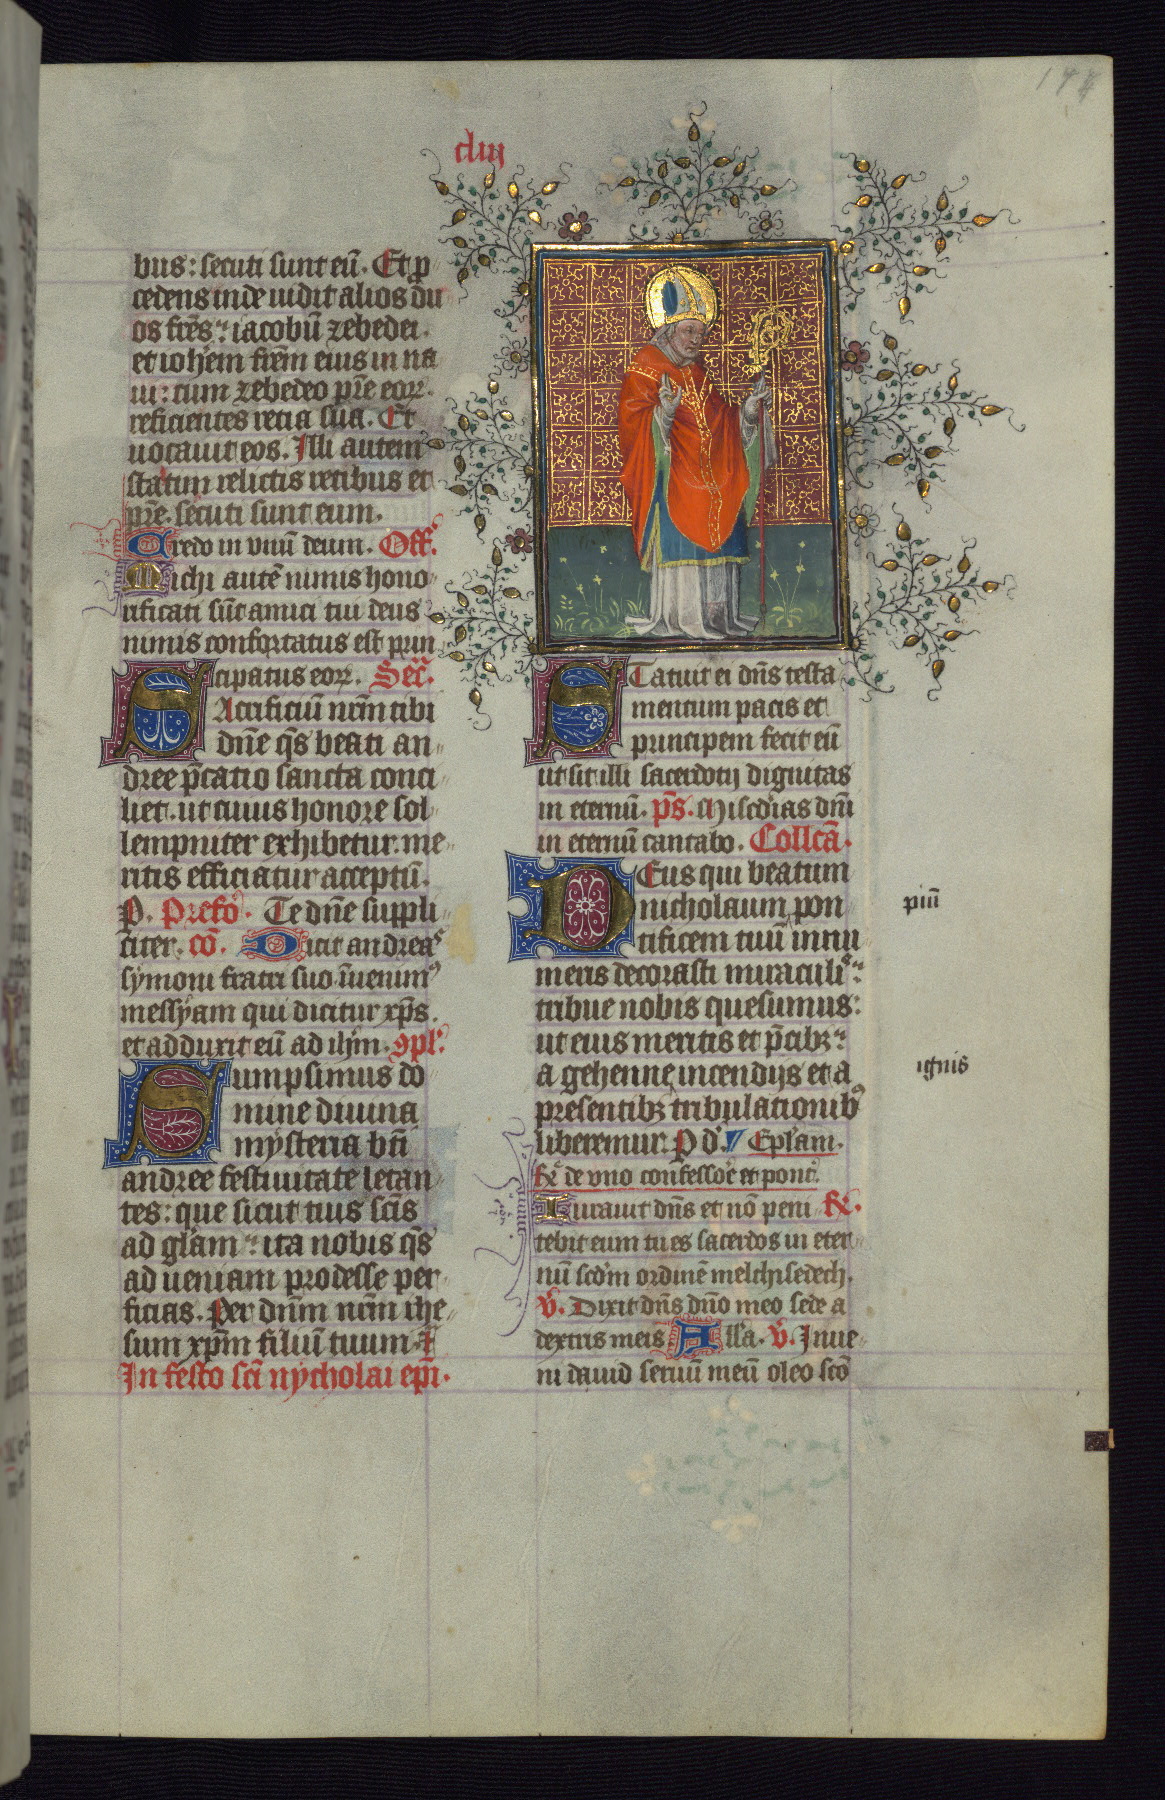 cliij
bus: secuti sunt eū. Et p
cedens inde uidit alios du
os frēs: iacobū zebedei.
et ioh̄em frēm eius in na
ui: cum zebedeo pr̄e eoꝝ.
reficientes retia sua. Et
uocauit eos. Illi autem
statim relictis retibus et
pr̄e. secuti sunt eum.
Credo in vnū deum. Off.
Michi autē nimis hono
rificati sūt amici tui deus
nimis confortatus est prin
cipatus eoꝝ. Secr̄.
SAcrificiū nr̄m tibi
dn̄e q̄s beati an
dree p̄catio sancta conci
liet. ut cuius honore sol
lempniter exhibetur. me
ritis efficiatur acceptū.
P. Prefō. Te dn̄e suppli
citer. cō. Dicit andreas
symoni fratri suo īuenimꝰ
messyam qui dicitur xp̄s.
et adduxit eū ad ih̄m. ꝯpl̄.
Sumpsimus do
mine diuina
mysteria bt̄i
andree festiuitate letan
tes: que sicut tuis sc̄is
ad gl̄am: ita nobis q̄s
ad ueniam prodesse per
ficias. Per dn̄m nr̄m ihe
sum xp̄m filiū tuum.
In festo sc̄i nycholai ep̄i.
STatuit ei dn̄s testa
mentum pacis et
principem fecit eū
ut sit illi sacerdotij dignitas
in eternū. p̄s. Misc̄dias dn̄i
in eternū cantabo. Collc̄a.
DEus qui beatum
nicholaum pon
tificem tuū innu
meris decorasti miraculis:
tribue nobis quesumus:
ut eius meritis et p̄cibꝫ:
a gehenne incendijs et a
presentibꝫ tribulationibꝰ
liberemur. P d̄. Epl̄am.
Rx̄ de vno confessor̄e et pont̄.
Iurauit dn̄s et nō peni Rx̄.
tebit eum tu es sacerdos in eter
nū sc̄dm ordinē melchisedech.
v̄. Dixit dn̄s dn̄o meo sede a
dextris meis. All̄a. v̄. Inue
ni dauid seruū meū oleo sc̄o
piū
ignis